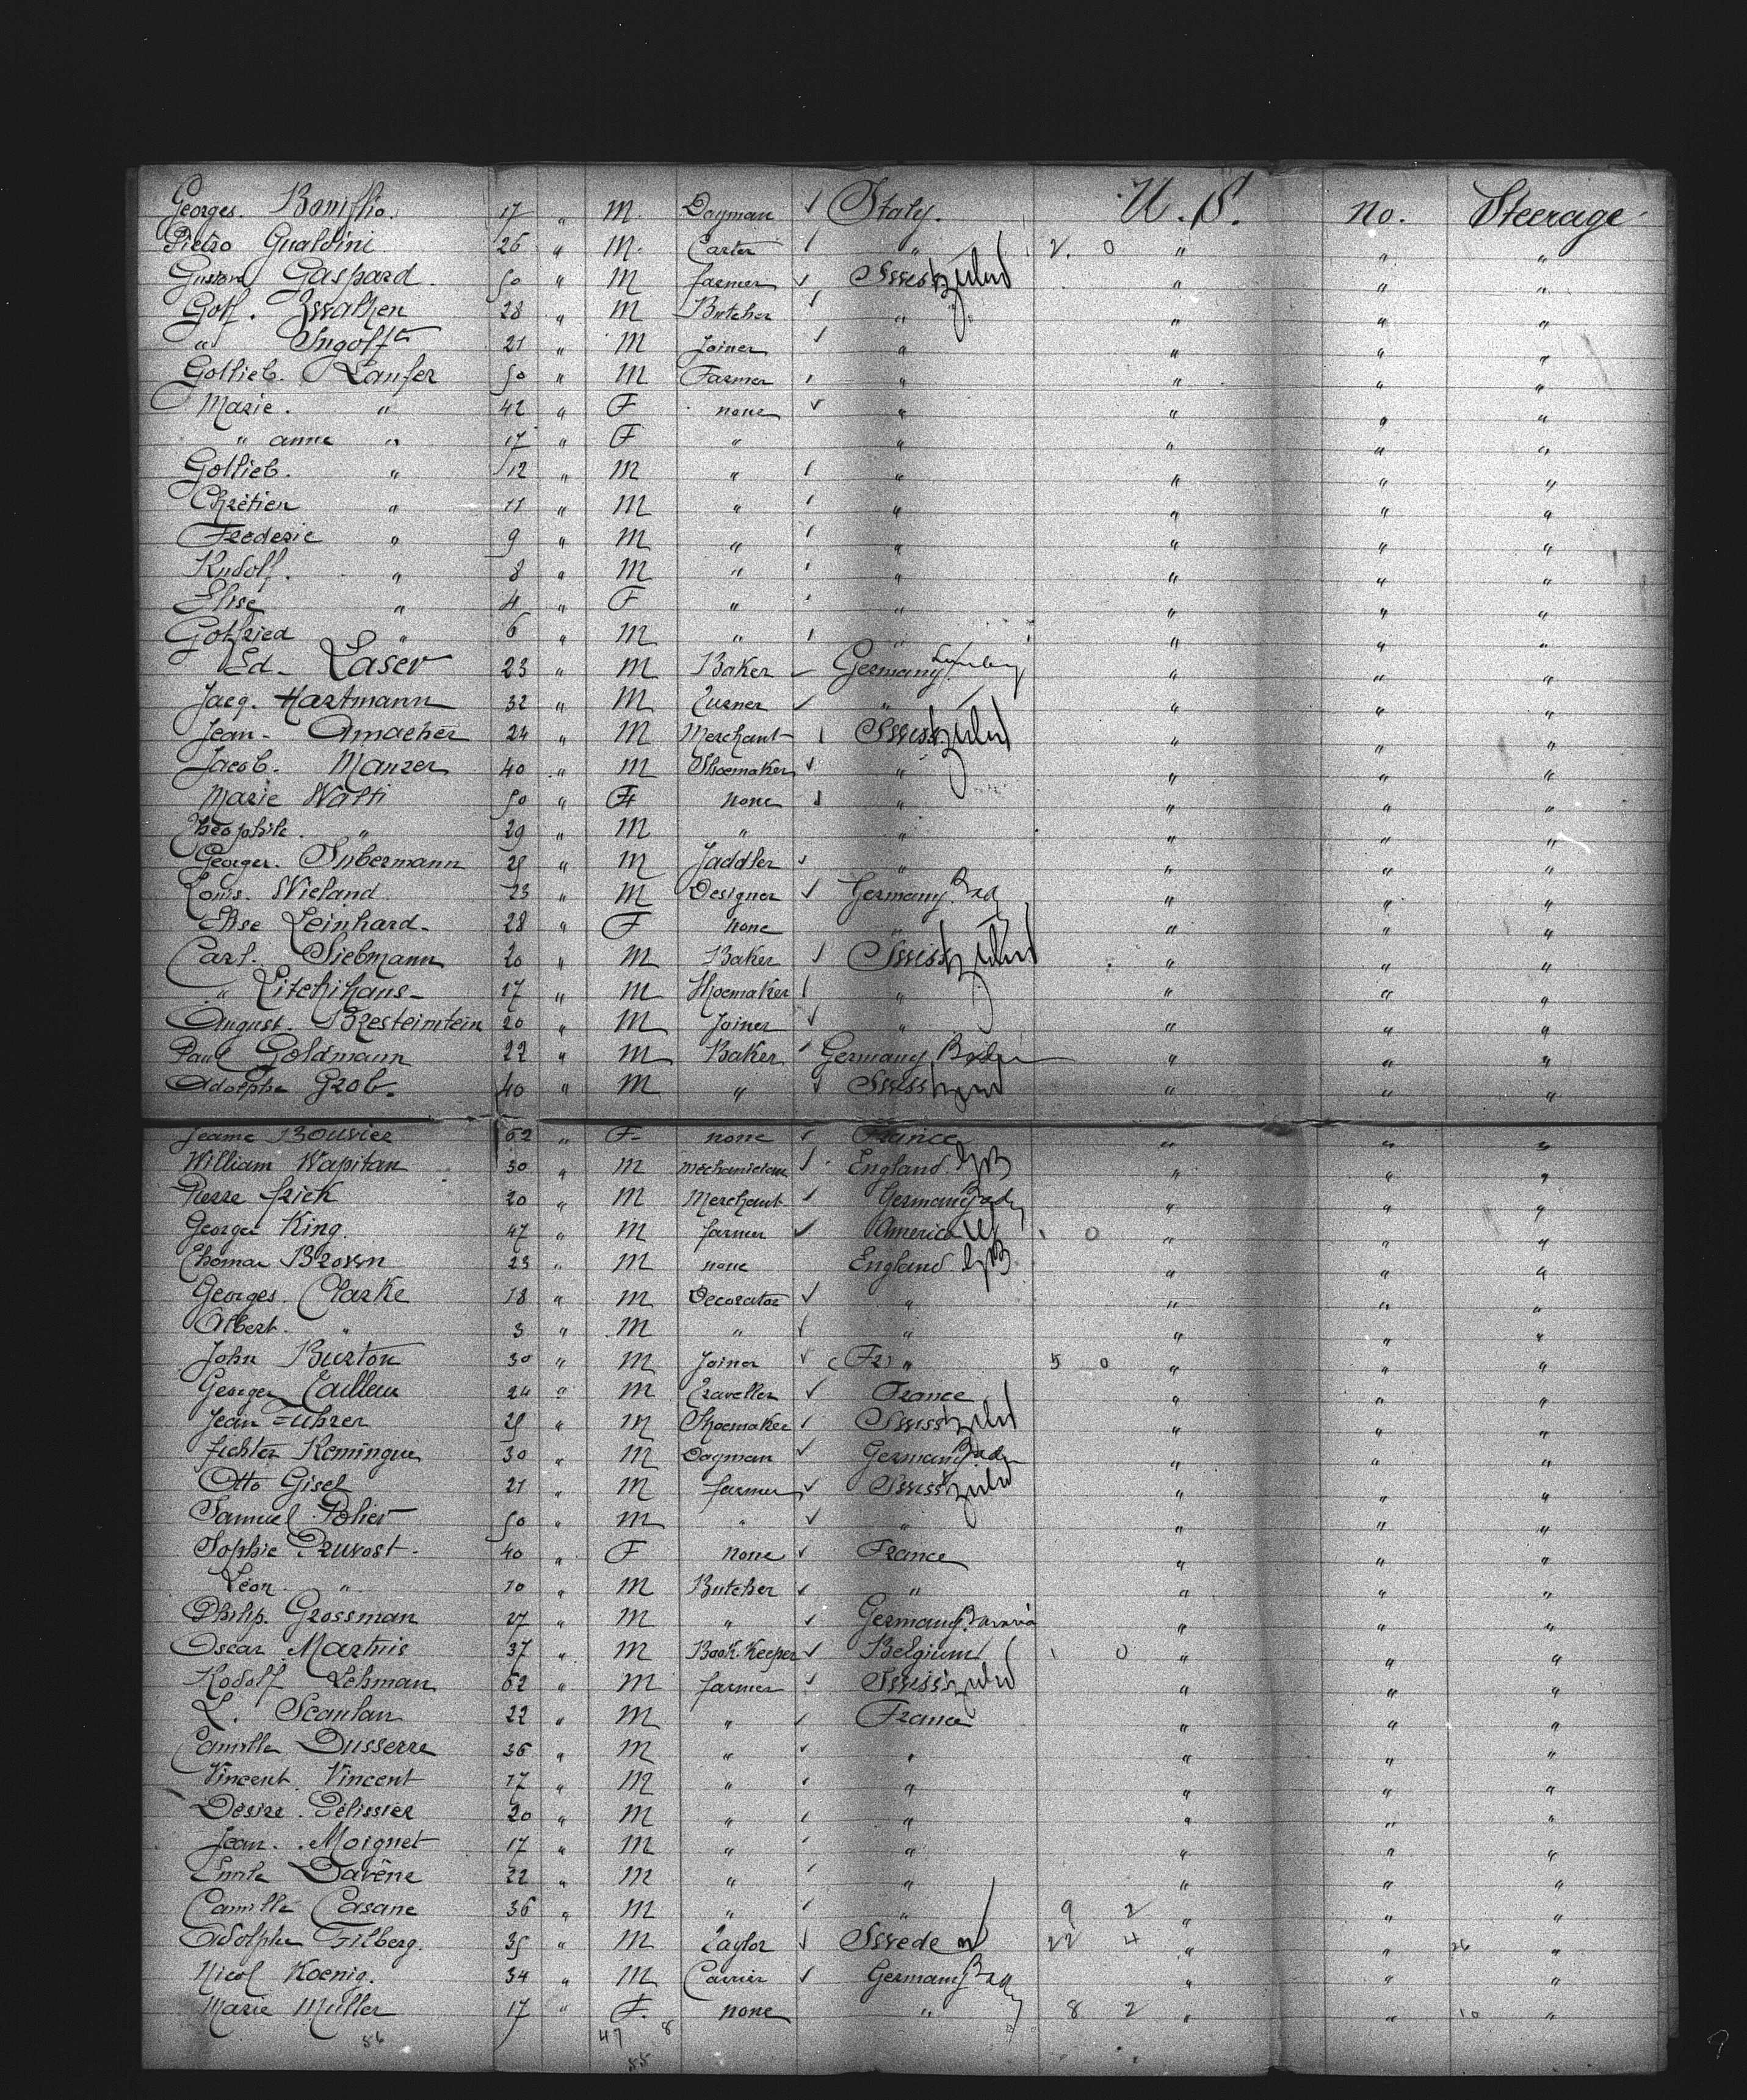 Georges. Boniflio. 17 " M. Dayman √ Italy. U.S. no. Steerage
Pietro Gualdini 26 " M. Carter " 2. 0 " " "
Gustave Gaspard 50 " M farmer √ Swiss " " "
Gott. Zwalhen 28 " M Butcher " " " "
" Ingolf 21 " M Joiner " " " "
Gottlieb. Laufer 50 " M Farmer " " " "
Marie. " 42 " F none √ " " " "
" anna " 17 " F " " " " "
Gottlieb. " 12 " M " " " " "
Chrétien " 11 " M " " " " "
Frederic " 9 " M " " " " "
Rudolf. " 8 " M " " " " "
Elise " 4 " F " " " " "
Gotfried " 6 " M " " " " "
Ed. Laser 23 " M Baker Germany " " "
Jacq. Hartmann 32 " M Turner √ " " " "
Jean Amacher 24 " M Merchant Swiss " " "
Jacob. Manzer 40 " M Shoemaker √ " " " "
Marie Watti 50 " F none √ " " " "
Théophile. " 29 " M " " " " "
Georges. Subermann 25 " M Saddler √ " " " "
Louis. Wieland 23 " M Designer √ Germany " " "
Elise Leinhard 28 " F none " " " "
Carl. Siebmann 20 " M Baker √ Swiss " " "
" Litchihans 17 " M Shoemaker " " " "
August. Bresteinstein 20 " M Joiner √ " " " "
Paul Goldmann 22 " M Baker Germany Baden " " "
Adolphe Grob. 40 " M " √ Swiss " " "
Jeanne Bouvier 62 " F none √ France " " "
William Wapitan 30 " M mechanician √ England GB " " "
Pierre frick 20 " M Merchant √ Germany Baden " " "
George King. 47 " M farmer √ America US 1 0 " " "
Thomas Brown 23 " M none England GB " " "
Georges. Clarke 18 " M Decorator √ " " " "
Albert. " 3 " M " √ " " " "
John Burton 30 " M Joiner √ (Fr) " 5 0 " " "
Georges Cailleau 24 " M Traveller √ France " " "
Jean Fuhrer 25 " M Shoemaker √ Swiss " " "
fichter Remingue 30 " M Dayman √ Germany Baden " " "
Otto Gisel 21 " M farmer √ Swiss " " "
Samuel Polier 50 " M " √ " " " "
Sophie Pruvost. 40 " F none √ France " " "
Léon " 10 " M Butcher √ " " " "
Philip. Grossman 27 " M " √ Germany Bavaria " " "
Oscar Martnis 37 " M Book.Keeper √ Belgium 1 0 " " "
Rodolf Lehman 62 " M farmer √ Swiss " " "
L. Scanlan 22 " M " √ France " " "
Camille Dusserre 36 " M " √ " " " "
Vincent. Vincent 17 " M " √ " " " "
Désiré. Pélissier 20 " M " " " " "
Jean. Moignet 17 " M " " " " "
Emile Davène 22 " M " " " " "
Camille Casane 36 " M " " 9 2 " " "
Adolphe Filberg. 35 " M Taylor √ Sweden 22 4 " " 26 "
Nicol Koenig. 34 " M Carrier √ Germany " " "
Marie Müller 17 " F. none " 8 2 " " 10 "
56 47 8
55